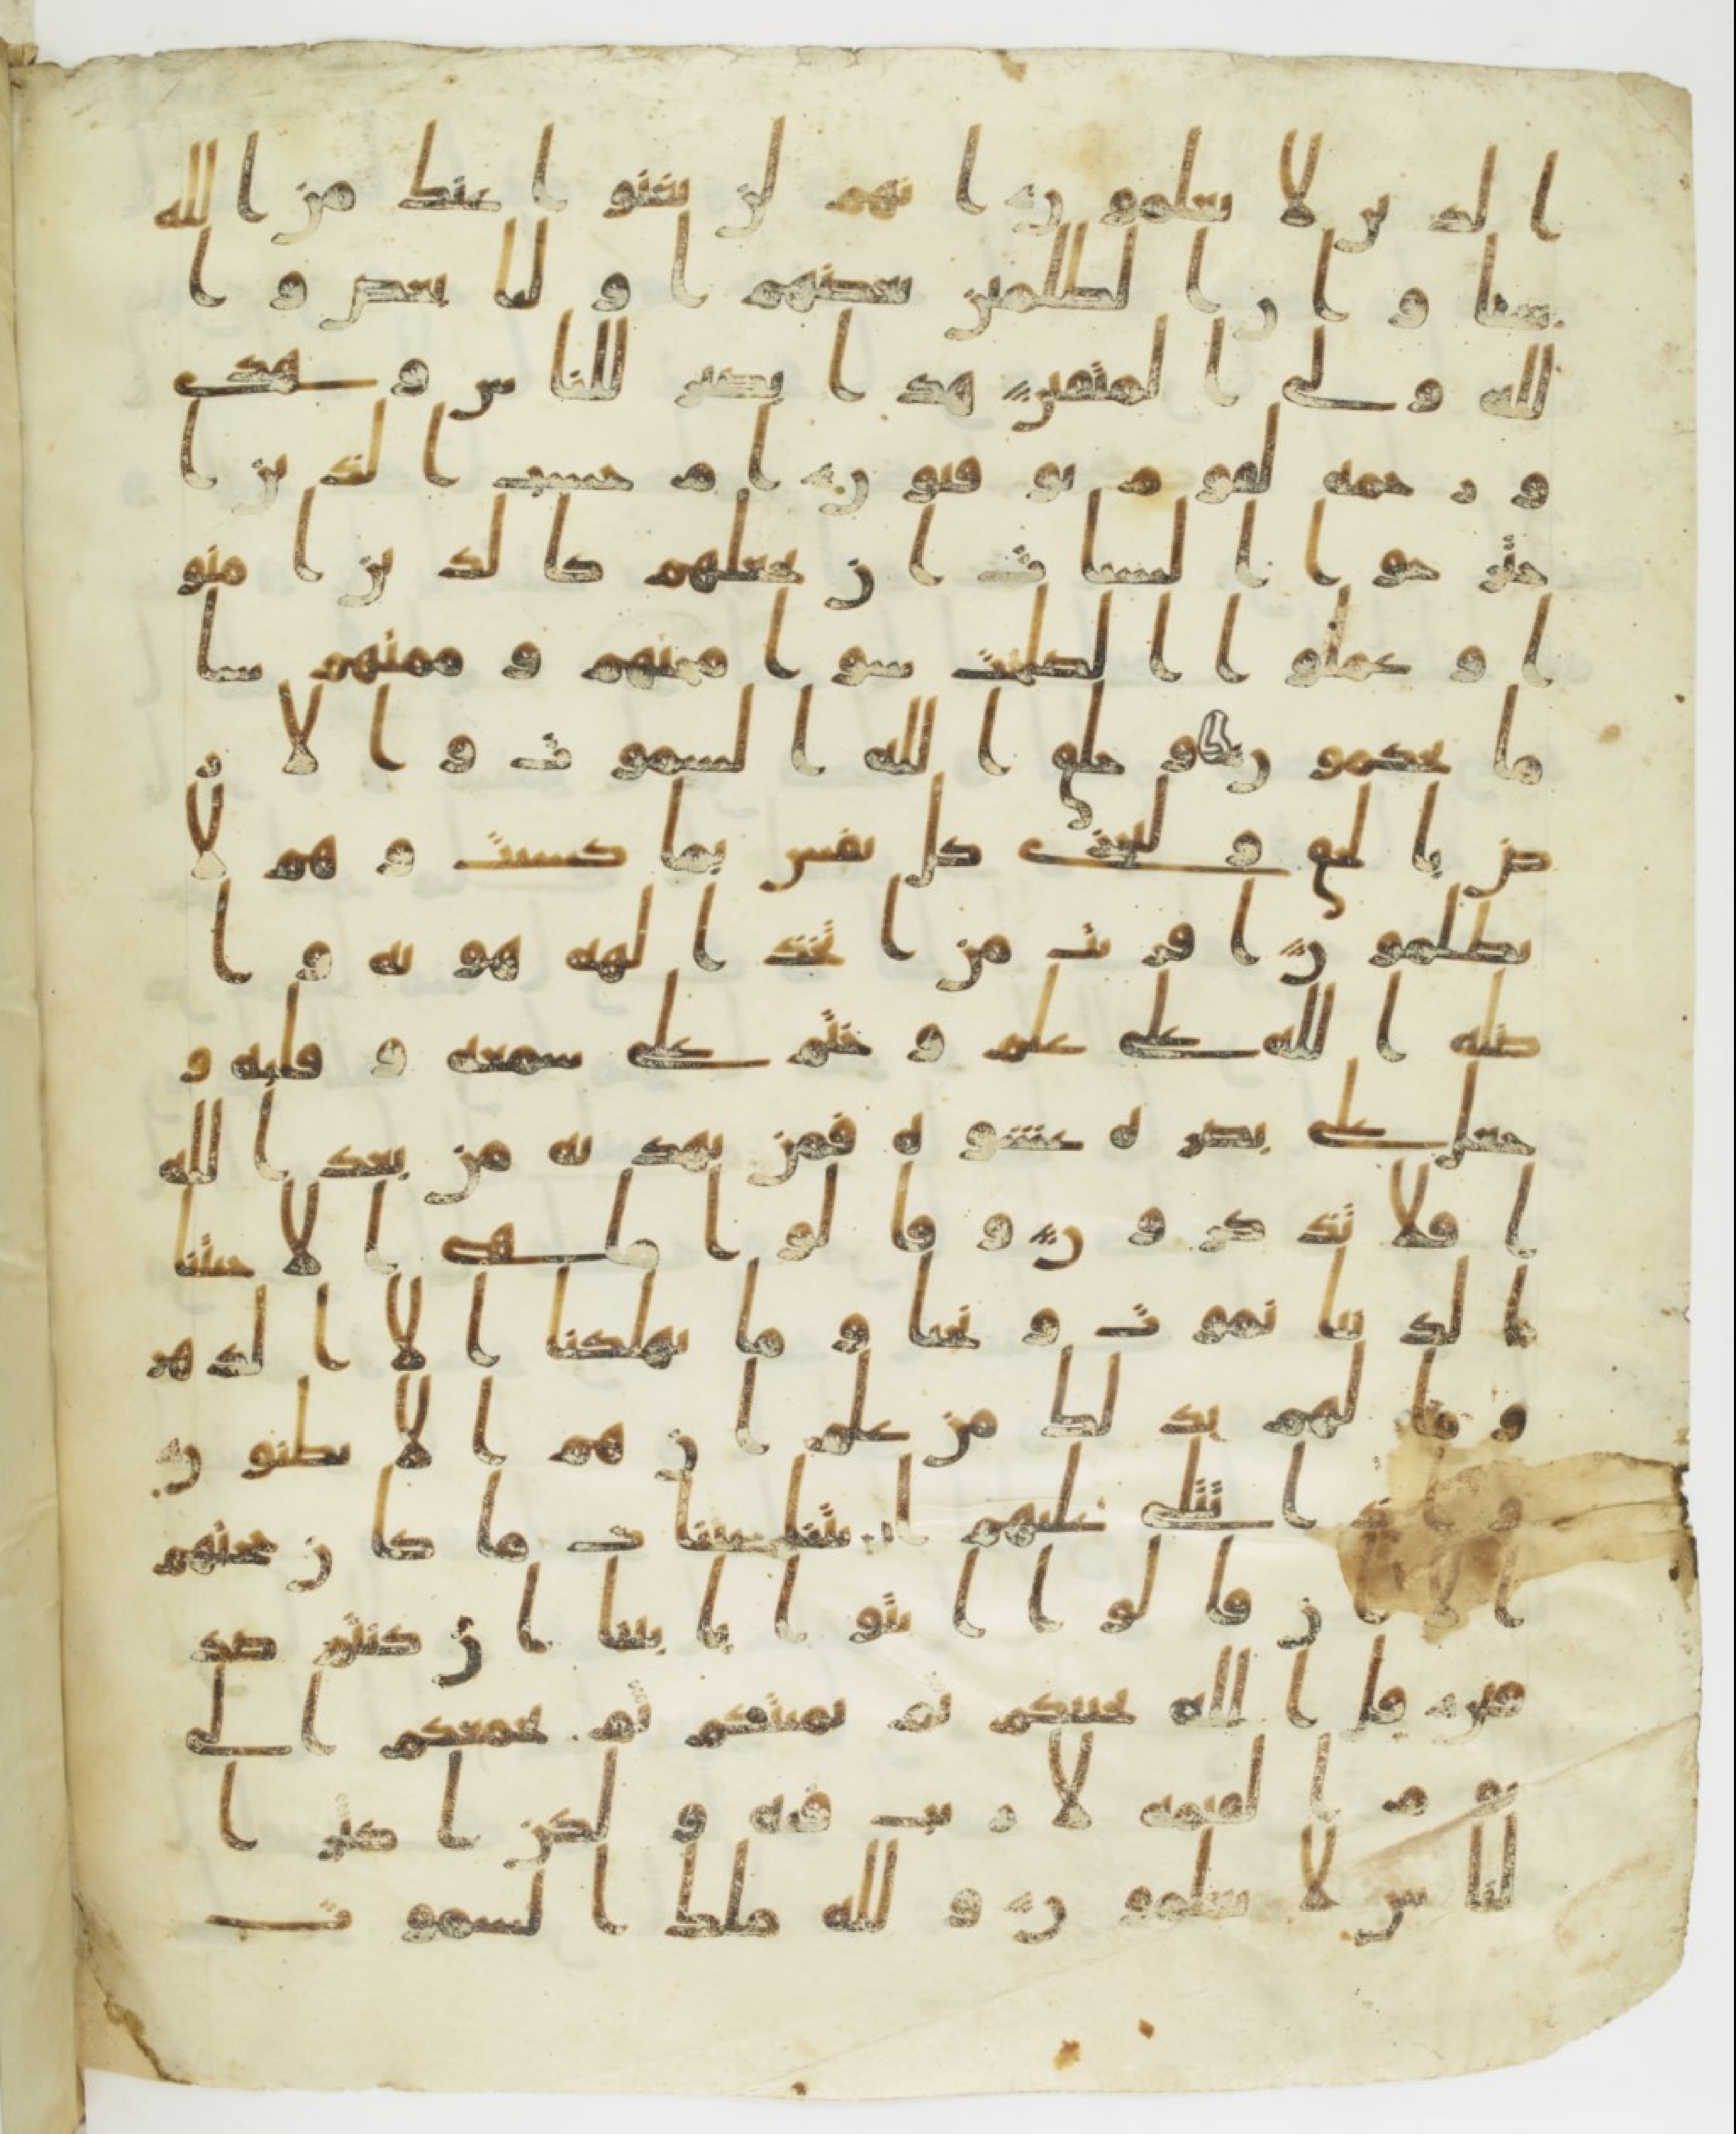 الذين لا يعلمون انهم لن يغنوا عنك من الله
شيا وان الظلمين بعضهم اوليا بعض وا
لله ولي المتقين هذا بصير للناس وهدى
ورحمه لقوم يوقنون ام حسب الذين ا
جترحوا السيات ان نجعلهم كالذين امنو
ا وعملوا الصلحت سوا محيهم وممتهم سا
ما يحكمون وخلق الله السموت والار
ض بالحق ولتجزى كل نفس بما كسبت وهم لا
يظلمون افريت من اتخذ الهه هويه وا
ضله الله على علم وختم على سمعه وقلبه و
جعل على بصره غشوه فمن يهديه من بعد الله
افلا تذكرون وقالوا ما هي الا حيتنا
الدنيا نموت ونحيا وما يهلكنا الا الدهر
وما لهم بذلك من علم ان هم الا يظنون
واذا تتلى عليهم ايتنا بينت ما كان حجتهم
الا ان قالوا ايتوا باباينا ان كنتم صد
قين قل الله يحييكم ثم يميتكم ثم يجمعكم الى
يوم القيمه لا ريب فيه ولكن اكثر ا
لناس لا يعلمون ولله ملك السموت